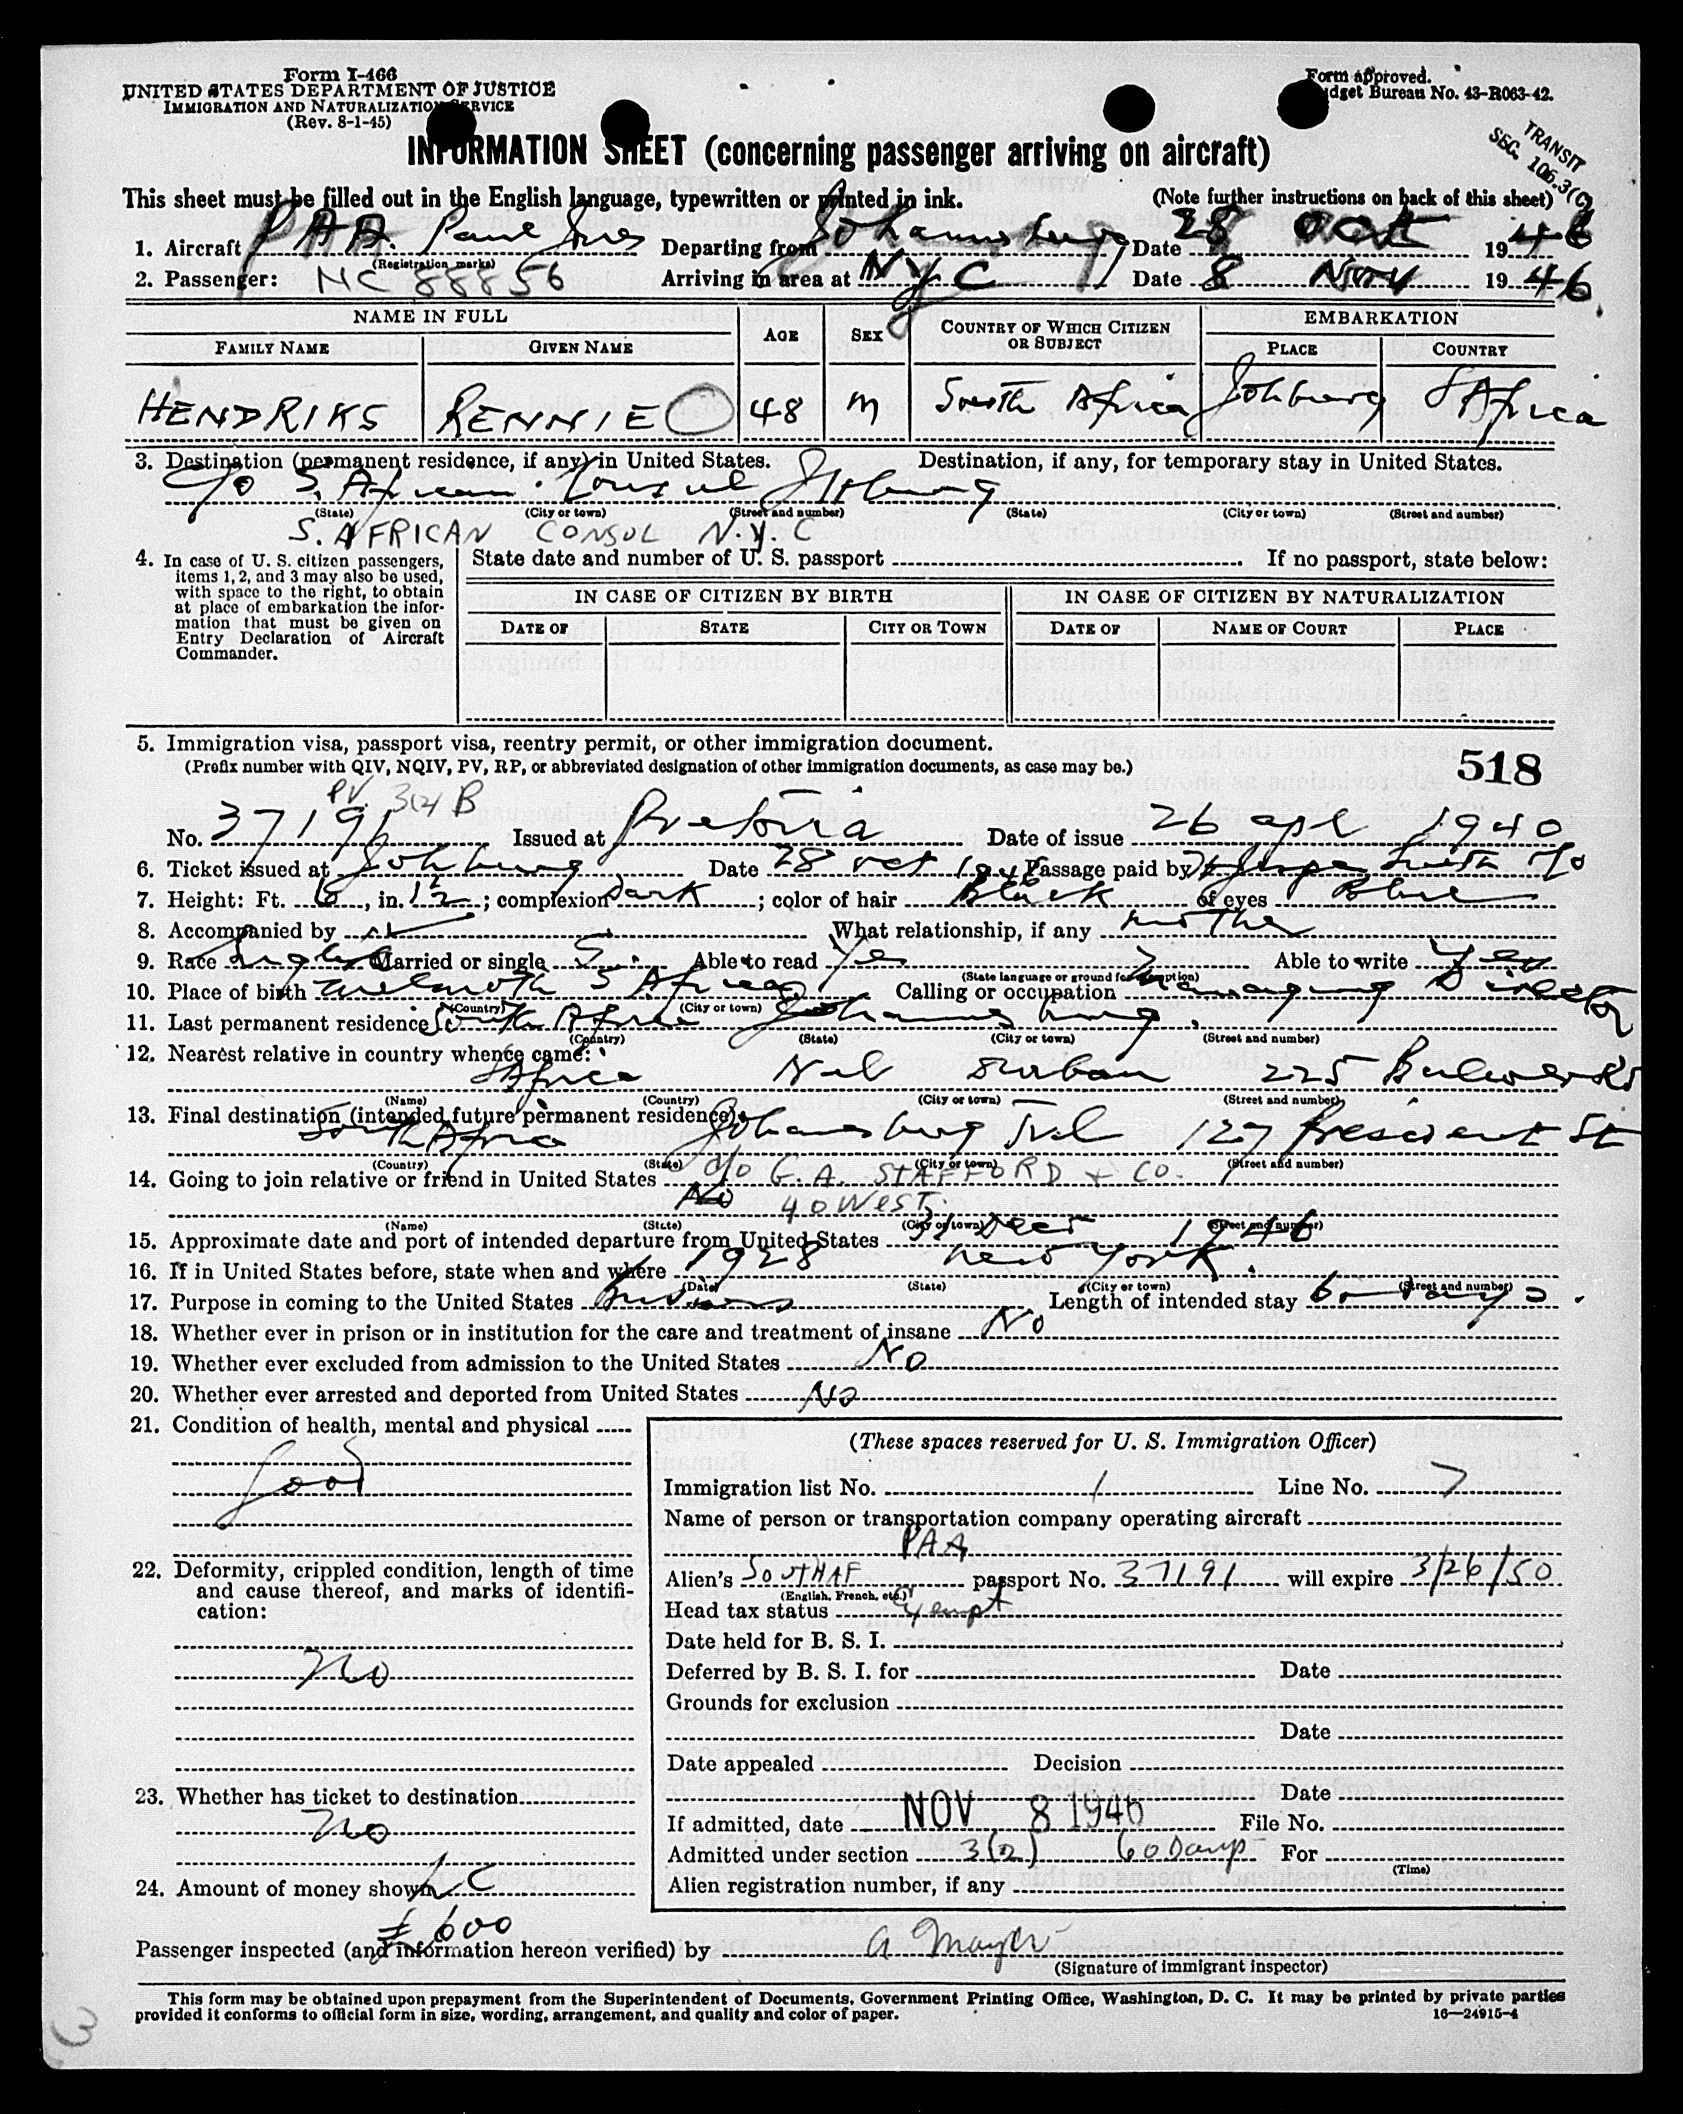 Form I-466
UNITED STATES DEPARTMENT OF JUSTICE
IMMIGRATION AND NATURALIZATION SERVICE
(Rev. 8-1-45)
Form approved.
Budget Bureau No. 43-R063-42.
TRANSIT
SEC. 106.3(C)
INFORMATION SHEET (concerning passenger arriving on aircraft)
This sheet must be filled out in the English language, typewritten or printed in ink. (Note further instructions on back of this sheet)
1. Aircraft PAA. Departing from Johannesburg Date 28 Oct 1946
(Registration marks)
2. Passenger: NC 88856 Arriving in area at NYC Date 8 Nov 1946
NAME IN FULL AGE SEX COUNTRY OF WHICH CITIZEN OR SUBJECT EMBARKATION
FAMILY NAME GIVEN NAME PLACE COUNTRY
HENDRIKS RENNIE 48 M South Africa Johburg S Africa
3. Destination (permanent residence, if any) in United States. Destination, if any, for temporary stay in United States.
c/o S. African Consul
(State) (City or town) (Street and number) (State) (City or town) (Street and number)
S. AFRICAN CONSUL N.Y.C
4. In case of U. S. citizen passengers, items 1, 2, and 3 may also be used, with space to the right, to obtain at place of embarkation the information that must be given on Entry Declaration of Aircraft Commander.
State date and number of U. S. passport If no passport, state below:
IN CASE OF CITIZEN BY BIRTH IN CASE OF CITIZEN BY NATURALIZATION
DATE OF STATE CITY OR TOWN DATE OF NAME OF COURT PLACE
5. Immigration visa, passport visa, reentry permit, or other immigration document.
(Prefix number with QIV, NQIV, PV, RP, or abbreviated designation of other immigration documents, as case may be.)
518
PV. 3(2) B
No. 37191 Issued at Pretoria Date of issue 26 apl 1940
6. Ticket issued at Johburg Date 28 Oct 1946 Passage paid by
7. Height: Ft. 6, in. 1½; complexion Dark; color of hair Black of eyes Blue
8. Accompanied by What relationship, if any
9. Race English Married or single S. Able to read Yes Able to write Yes
(State language or ground for exemption)
10. Place of birth S Africa Calling or occupation Managing Director
(Country) (City or town)
11. Last permanent residence South Africa Johannesburg.
(Country) (State) (City or town) (Street and number)
12. Nearest relative in country whence came:
S Africa Durban 225 Bulwer Rd
(Name) (Country) (City or town) (Street and number)
13. Final destination (intended future permanent residence):
South Africa Johannesburg Tvl 127 President St
(Country) (State) (City or town) (Street and number)
14. Going to join relative or friend in United States c/o G.A. STAFFORD + CO.
No 40 WEST.
(Name) (State) (City or town) (Street and number)
15. Approximate date and port of intended departure from United States 31 Decr 1946
16. If in United States before, state when and where 1928 New York.
(Date) (State) (City or town) (Street and number)
17. Purpose in coming to the United States Business Length of intended stay 60 days.
18. Whether ever in prison or in institution for the care and treatment of insane No
19. Whether ever excluded from admission to the United States No
20. Whether ever arrested and deported from United States No
21. Condition of health, mental and physical
Good
22. Deformity, crippled condition, length of time and cause thereof, and marks of identification:
No
23. Whether has ticket to destination
No
24. Amount of money shown L/C
£600
(These spaces reserved for U. S. Immigration Officer)
Immigration list No. 1 Line No. 7
Name of person or transportation company operating aircraft
PAA
Alien's SOUTH AF passport No. 37191 will expire 3/26/50
(English, French, etc.)
Head tax status Exempt
Date held for B. S. I.
Deferred by B. S. I. for Date
Grounds for exclusion
Date
Date appealed Decision
Date
If admitted, date NOV 8 1946 File No.
Admitted under section 3(2) 60 Days For
(Time)
Alien registration number, if any
Passenger inspected (and information hereon verified) by A Mayer
(Signature of immigrant inspector)
This form may be obtained upon prepayment from the Superintendent of Documents, Government Printing Office, Washington, D. C. It may be printed by private parties
provided it conforms to official form in size, wording, arrangement, and quality and color of paper. 16—24915-4
3